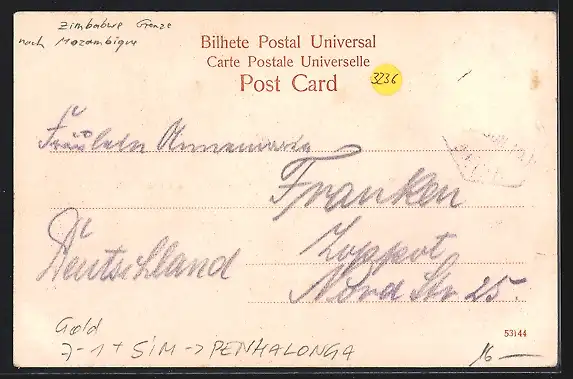 Zimbabwe Grenze
nach Mozambique
Bilhete Postal Universal
Carte Postale Universelle
Post Card
3236
Fräulein Annemarie
Franken
Zoppot
Deutschland
Nord Str 25.
Gold
7-1+ SIM -> PENHALONGA
53144
16 —